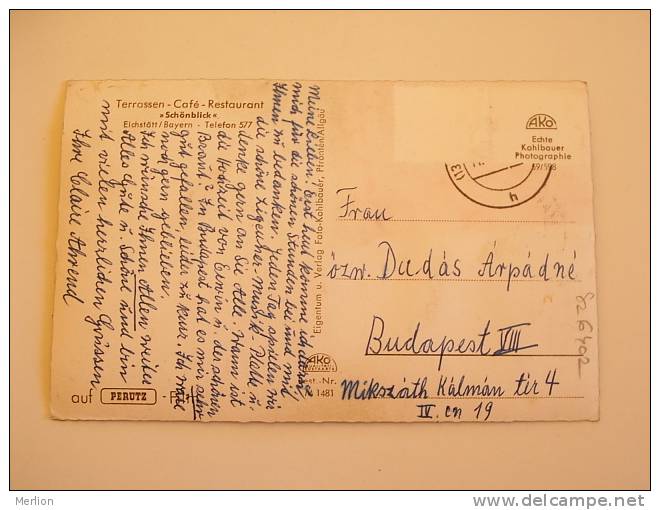 Terrassen - Café - Restaurant
»Schönblick«
Eichstätt/Bayern - Telefon 577
Meine Lieben. Erst heut komme ich dazu
mich für die schönen Stunden bei und mit
Ihnen zu bedanken. Jeden Tag spielen wir
die schöne Zigeuner Musik Platte u.
denke gern an Sie Alle. Wann ist
die Hochzeit von Erwin u. der schönen
Braut? In Budapest hat es mir sehr
gut gefallen, leider zu kurz. Ich wäre
noch gern geblieben.
Ich wünsche Ihnen Allen weiter
Alles Gute u. Schöne und bin
mit vielen herzlichen Grüssen
Ihre Claire Ahrend
auf PERUTZ -
Eigentum u. Verlag Foto-Kohlbauer, Pfronten/Allgäu
AKO
Best.-Nr.
1481
AKO
Echte
Kohlbauer
Photographie
59/598
(13
h
Frau
özw. Dudás Árpádné
Budapest VIII
Mikszáth Kálmán tér 4
IV. em 19
826402
Merlion
www.delcampe.net